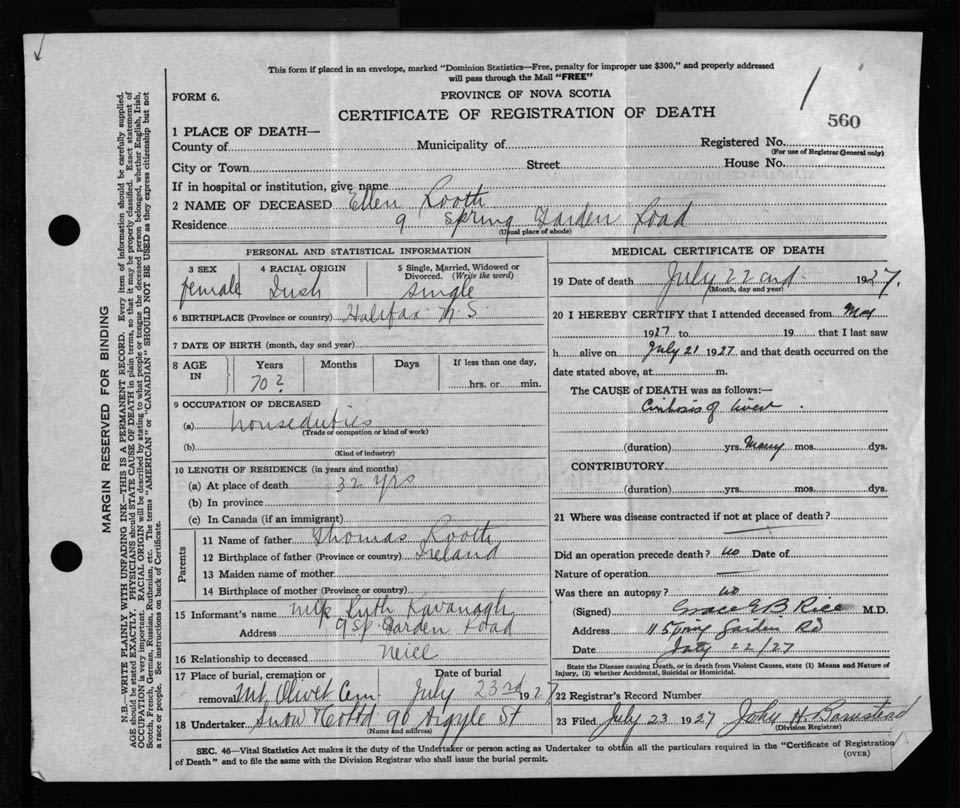 This form if placed in an envelope, marked "Dominion Statistics—Free, penalty for improper use $300," and properly addressed
will pass through the Mail "FREE"
FORM 6.
PROVINCE OF NOVA SCOTIA
CERTIFICATE OF REGISTRATION OF DEATH
560
1 PLACE OF DEATH—
County of Municipality of Registered No.
(For use of Registrar General only)
City or Town Street House No.
If in hospital or institution, give name
2 NAME OF DECEASED Ellen Rooth
Residence 9 Spring Garden Road
(Usual place of abode)
PERSONAL AND STATISTICAL INFORMATION
3 SEX 4 RACIAL ORIGIN 5 Single, Married, Widowed or
Divorced. (Write the word)
female Irish single
6 BIRTHPLACE (Province or country) Halifax N.S.
7 DATE OF BIRTH (month, day and year)
8 AGE IN Years Months Days If less than one day,
70? hrs. or min.
9 OCCUPATION OF DECEASED
(a) houseduties
(Trade or occupation or kind of work)
(b)
(Kind of industry)
10 LENGTH OF RESIDENCE (in years and months)
(a) At place of death 32 yrs
(b) In province
(c) In Canada (if an immigrant)
Parents
11 Name of father Thomas Rooth
12 Birthplace of father (Province or country) Ireland
13 Maiden name of mother
14 Birthplace of mother (Province or country)
15 Informant's name Ruth Kavanagh
Address 9 Sp. Garden Road
16 Relationship to deceased Neice
17 Place of burial, cremation or Date of burial
removal Mt Olivet Cem July 23rd 1927
18 Undertaker Snow & Co Ltd 90 Argyle St
(Name and address)
MEDICAL CERTIFICATE OF DEATH
19 Date of death July 22nd 1927.
(Month, day and year)
20 I HEREBY CERTIFY that I attended deceased from May
1927 to 19 that I last saw
h alive on July 21 1927 and that death occurred on the
date stated above, at m.
The CAUSE of DEATH was as follows:—
Cirrhosis of liver
(duration) yrs. Many mos. dys.
CONTRIBUTORY
(duration) yrs. mos. dys.
21 Where was disease contracted if not at place of death?
Did an operation precede death? no Date of
Nature of operation
Was there an autopsy? no
(Signed) Grace E B Rice M.D.
Address 11 Spring Garden Rd
Date July 22/27
State the Disease causing Death, or in death from Violent Causes, state (1) Means and Nature of
Injury, (2) whether Accidental, Suicidal or Homicidal.
22 Registrar's Record Number
23 Filed July 23 1927 John H. Barnstead
(Division Registrar)
SEC. 46—Vital Statistics Act makes it the duty of the Undertaker or person acting as Undertaker to obtain all the particulars required in the "Certificate of Registration
of Death" and to file the same with the Division Registrar who shall issue the burial permit.
(OVER)
MARGIN RESERVED FOR BINDING
N.B.—WRITE PLAINLY WITH UNFADING INK—THIS IS A PERMANENT RECORD. Every item of information should be carefully supplied.
AGE should be stated EXACTLY. PHYSICIANS should STATE CAUSE OF DEATH in plain terms, so that it may be properly classified. Exact statement of
OCCUPATION is very important. RACIAL ORIGIN will be described by stating to what people or tongue the deceased person belonged, whether English, Irish,
Scotch, French, German, Russian, Ruthenian, etc. The terms "AMERICAN" or "CANADIAN" SHOULD NOT BE USED as they express citizenship but not
a race or people. See instructions on back of Certificate.